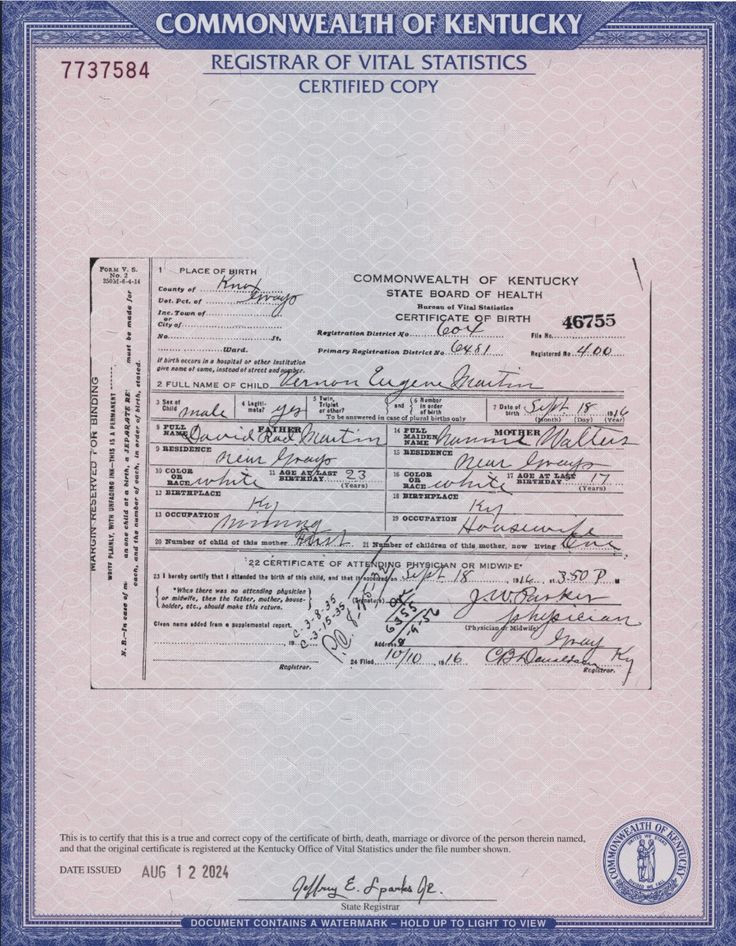 COMMONWEALTH OF KENTUCKY
7737584
REGISTRAR OF VITAL STATISTICS
CERTIFIED COPY
FORM V. S. No. 2
MARGIN RESERVED FOR BINDING
WRITE PLAINLY, WITH UNFADING INK—THIS IS A PERMANENT
N. B.—In case of m an one child at a birth, a SEPARATE RE must be made for
and the number of each, in order of birth, stated.
1 PLACE OF BIRTH
County of Knox
Vot. Pct. of Grays
Inc. Town of
or
City of
No. St.
Ward.
If birth occurs in a hospital or other institution
give name of same, instead of street and number.
COMMONWEALTH OF KENTUCKY
STATE BOARD OF HEALTH
Bureau of Vital Statistics
CERTIFICATE OF BIRTH
Registration District No 604 File No. 46755
Primary Registration District No 6481 Registered No 400
2 FULL NAME OF CHILD Vernon Eugene Martin
3 Sex of Child male 4 Legitimate? yes 5 Twin, Triplet or other? and 6 Number in order of birth 7 Date of birth Sept 18 1916
To be answered in case of plural births only (Month) (Day) (Year)
FATHER
8 FULL NAME David Martin
MOTHER
14 FULL MAIDEN NAME Nannie Walters
9 RESIDENCE near Grays
15 RESIDENCE near Grays
10 COLOR OR RACE white 11 AGE AT LAST BIRTHDAY 23 (Years)
16 COLOR OR RACE white 17 AGE AT LAST BIRTHDAY 17 (Years)
12 BIRTHPLACE Ky
18 BIRTHPLACE Ky
13 OCCUPATION mining
19 OCCUPATION Housewife
20 Number of child of this mother First 21 Number of children of this mother, now living One
22 CERTIFICATE OF ATTENDING PHYSICIAN OR MIDWIFE*
23 I hereby certify that I attended the birth of this child, and that it occurred on Sept 18, 1916, at 3:50 P. M
*When there was no attending physician
or midwife, then the father, mother, house-
holder, etc., should make this return.
(Signature) J W Parker
physician
(Physician or Midwife)
Given name added from a supplemental report.
19
C-3-8-35
C-3-15-35
6355
8-9-56
Address Gray Ky
Registrar.
24 Filed 10/10, 1916 C B Donaldson
Registrar.
This is to certify that this is a true and correct copy of the certificate of birth, death, marriage or divorce of the person therein named,
and that the original certificate is registered at the Kentucky Office of Vital Statistics under the file number shown.
DATE ISSUED AUG 12 2024
Jeffrey E. Sparks Jr.
State Registrar
COMMONWEALTH OF KENTUCKY
UNITED WE STAND
DIVIDED WE FALL
DOCUMENT CONTAINS A WATERMARK – HOLD UP TO LIGHT TO VIEW